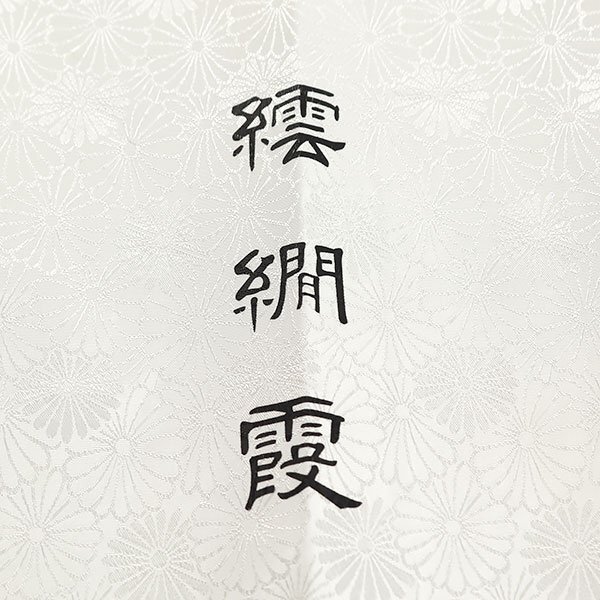 繧繝霞